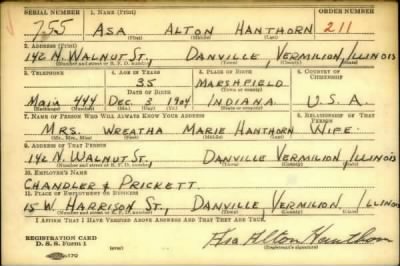 SERIAL NUMBER 1. NAME (Print) ORDER NUMBER
755 ASA ALTON HANTHORN 211
(First) (Middle) (Last)
2. ADDRESS (Print)
142 N. WALNUT ST., DANVILLE, VERMILION, ILLINOIS
(Number and street or R. F. D. number) (Town) (County) (State)
3. TELEPHONE 4. AGE IN YEARS 5. PLACE OF BIRTH 6. COUNTRY OF CITIZENSHIP
35 MARSHFIELD
DATE OF BIRTH (Town or county)
Main 444 Dec. 3 1904 INDIANA U.S.A.
(Mo.) (Day) (Yr.) (State or country)
7. NAME OF PERSON WHO WILL ALWAYS KNOW YOUR ADDRESS 8. RELATIONSHIP OF THAT PERSON
MRS. WREATHA MARIE HANTHORN WIFE.
(Mr., Mrs., Miss) (First) (Middle) (Last)
9. ADDRESS OF THAT PERSON
142 N. WALNUT ST., DANVILLE VERMILION, ILLINOIS
(Number and street or R. F. D. number) (Town) (County) (State)
10. EMPLOYER'S NAME
CHANDLER & PRICKETT.
11. PLACE OF EMPLOYMENT OR BUSINESS
15 W. HARRISON ST., DANVILLE VERMILION, ILLINOIS
(Number and street or R. F. D. number) (Town) (County) (State)
I AFFIRM THAT I HAVE VERIFIED ABOVE ANSWERS AND THAT THEY ARE TRUE.
REGISTRATION CARD
D. S. S. Form 1 Asa Alton Hanthorn
(Registrant's signature)